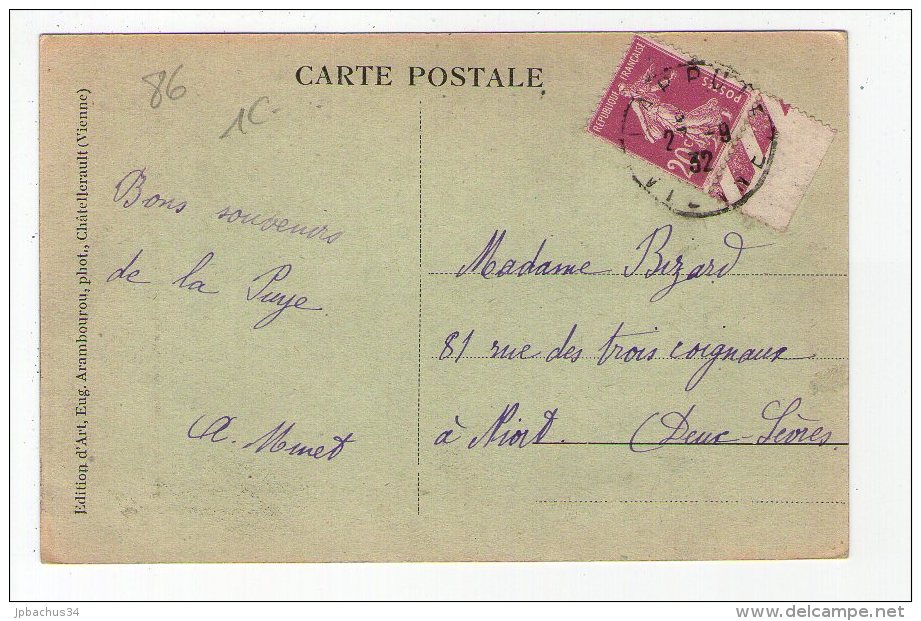 CARTE POSTALE
86
1C
Edition d'Art, Eug. Arambourou, phot., Châtellerault (Vienne)
REPUBLIQUE FRANÇAISE
POSTES
20c
LA PUYE
2 -9
32
Bons souvenirs
de la Puye.
A. Minet
Madame Bizard
81 rue des trois coignaux
à Niort. Deux-Sèvres
jpbachus34
www.delcampe.net